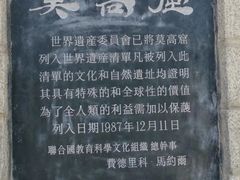 莫高窟
世界遺産委員會已將莫高窟
列入世界遺産清單凡被列入此
清單的文化和自然遺址均證明
其具有特殊的和全球性的價值
為了全人類的利益需加以保護
列入日期1987年12月11日
聯合國教育科學文化組織總幹事
費德里科·馬約爾